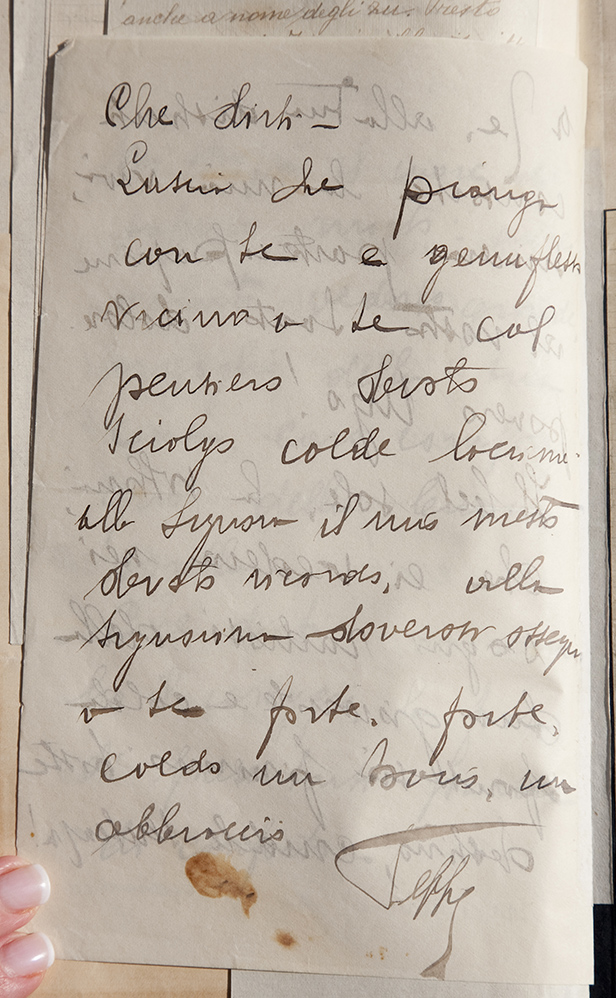 anche a nome degli zii. Presto
Che dirti –
Lascia che pianga
con te e genufless
vicino a te col
pensiero devoto
sciolga calde lacrime.
alla Signora il mio mesto
devoto ricordo, alla
Signorina doverosi ossequi
a te forte, forte,
caldo un bacio, un
abbraccio
Peppe